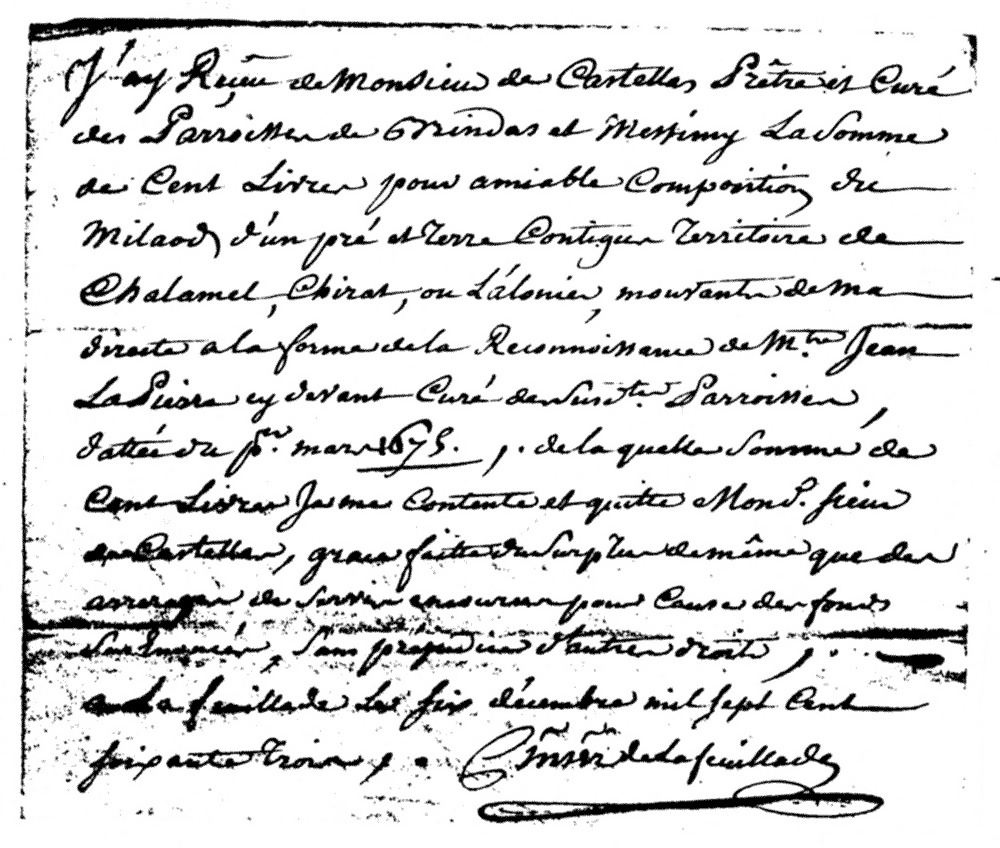 J'ay Reçeu de Monsieur de Castellas Prêtre et Curé
des Parroisses de Brindas et Messimy La Somme
de Cent Livres pour amiable Composition du
Milaod d'un pré et Terre Contigues Territoire de
Chalamel, Chirat, ou L'alonier, mouvants de ma
directe a la forme de la Reconnoissance de Mtre Jean
La Pierre cy devant Curé des Susdtes Parroisses,
dattée du pr. mars 1675. , de laquelle Somme de
Cent Livres Je me Contente et quitte Mond. sieur
de Castellas, grace faitte du Surplus de même que des
arrerages de Servis encourus pour Cause des fonds
Sus Enoncés, Sans préjudice d'autres droits,
a La feuillade Le six décembre mil sept Cent
soixante Trois, de La feuillade